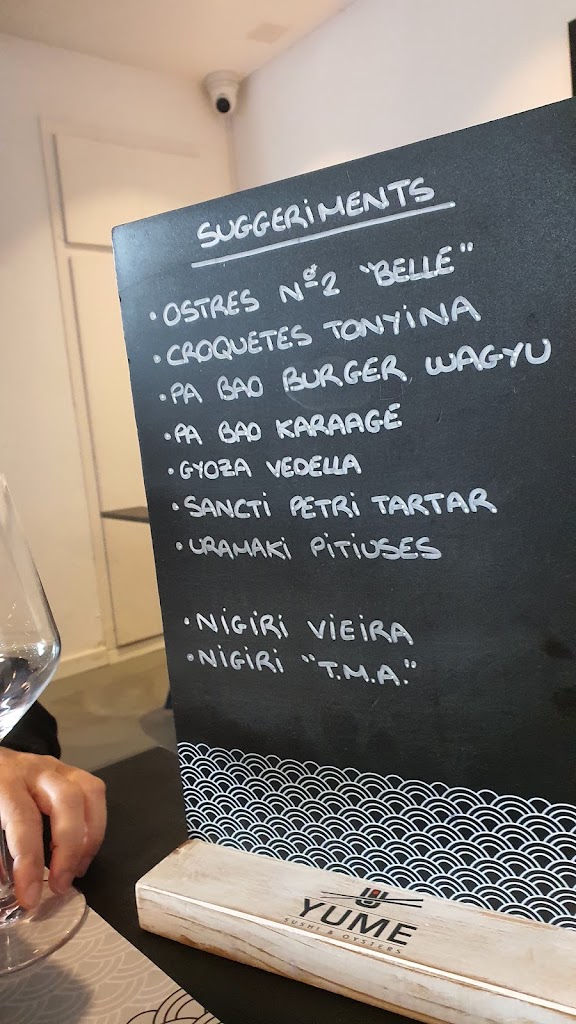 SUGGERIMENTS
• OSTRES Nº2 "BELLE"
• CROQUETES TONYINA
• PA BAO BURGER WAGYU
• PA BAO KARAAGE
• GYOZA VEDELLA
• SANCTI PETRI TARTAR
• URAMAKI PITIUSES
• NIGIRI VIEIRA
• NIGIRI "T.M.A."
YUME
SUSHI & OYSTERS